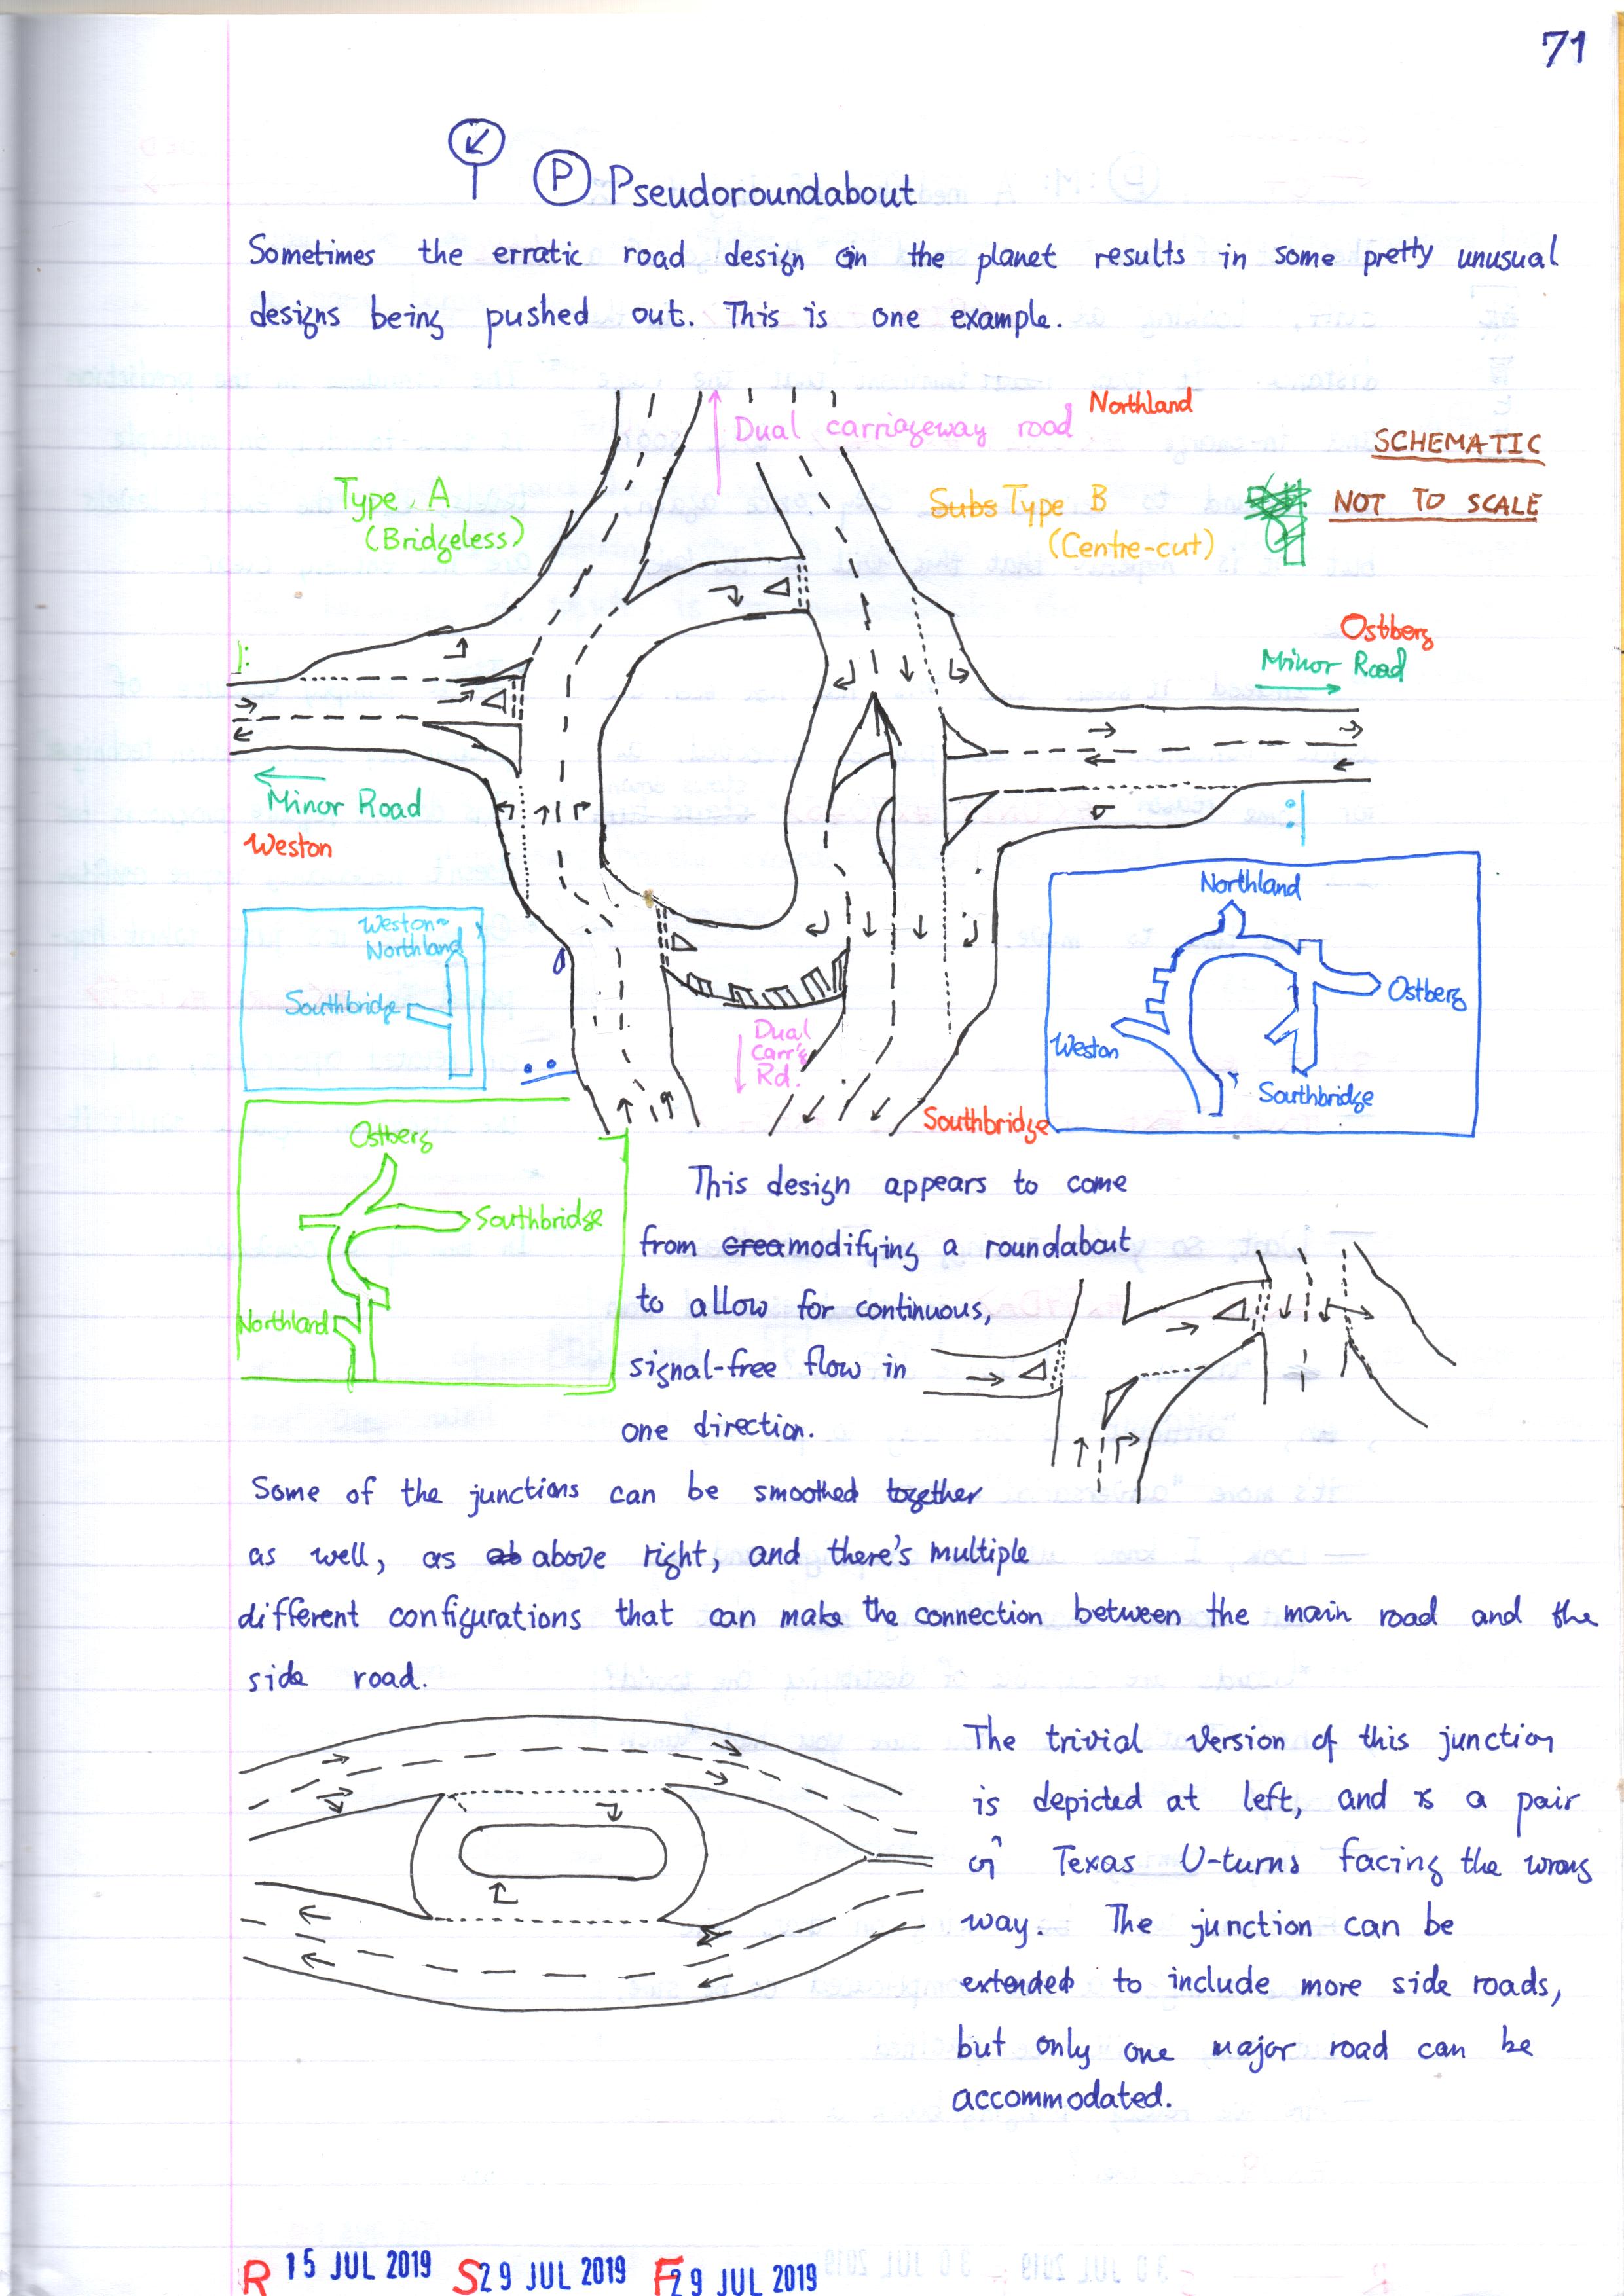 71
P Pseudoroundabout
Sometimes the erratic road design on the planet results in some pretty unusual
designs being pushed out. This is one example.
Dual carriageway road
Northland
SCHEMATIC
NOT TO SCALE
Type A
(Bridgeless)
Subs Type B
(Centre-cut)
Ostberg
Minor Road
Minor Road
Weston
Weston~
Northland
Southbridge
Dual
Carr'g
Rd.
Southbridge
Northland
Ostberg
Weston
Southbridge
Ostberg
Southbridge
Northland
This design appears to come
from crea modifying a roundabout
to allow for continuous,
signal-free flow in
one direction.
Some of the junctions can be smoothed together
as well, as ab above right, and there's multiple
different configurations that can make the connection between the main road and the
side road.
The trivial version of this junction
is depicted at left, and is a pair
of Texas U-turns facing the wrong
way. The junction can be
extended to include more side roads,
but only one major road can be
accommodated.
R 15 JUL 2019 S 29 JUL 2019 F 29 JUL 2019